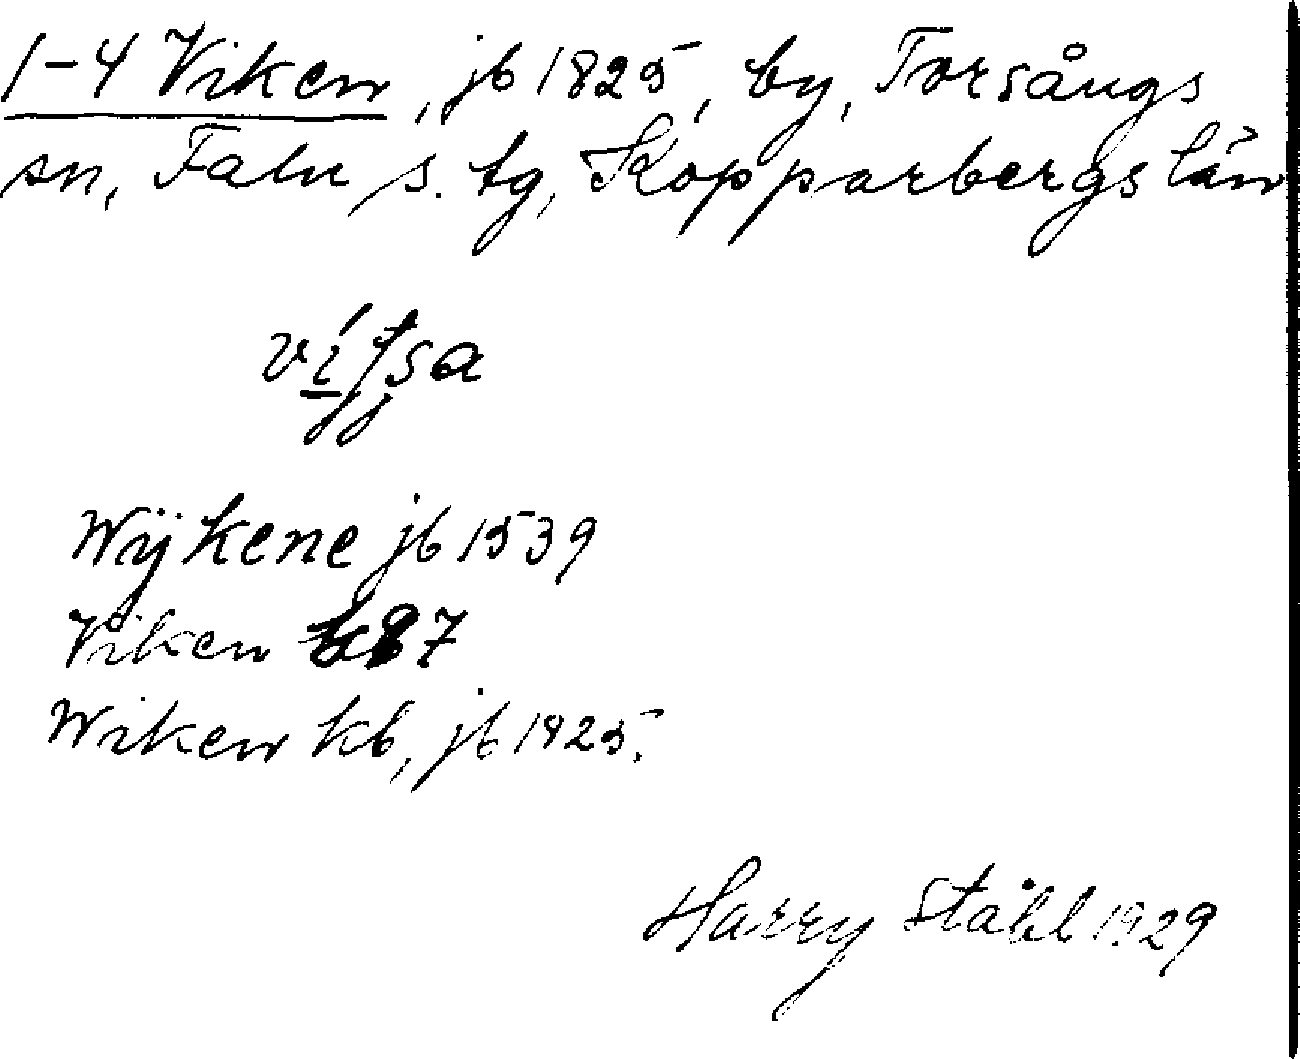 1-4 Viken, jb 1825, by, Torsångs
sn, Falu s. tg, Kopparbergs län
Wÿkene jb 1539
Viken 87
Wiken kb, jb 1825.
Harry Ståhl 1929